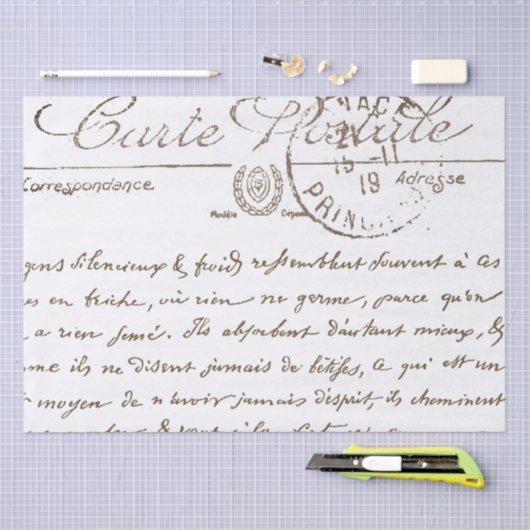 Carte Postale
NACO
15-11
19
PRINCI
Correspondance
Adresse
Modèle Déposé
gens silencieux & froids ressemblent souvent à ces
es en friche, où rien ne germe, parce qu'on
a rien semé. Ils absorbent d'autant mieux, &
me ils ne disent jamais de bêtises, ce qui est un
moyen de n'avoir jamais d'esprit, ils cheminent